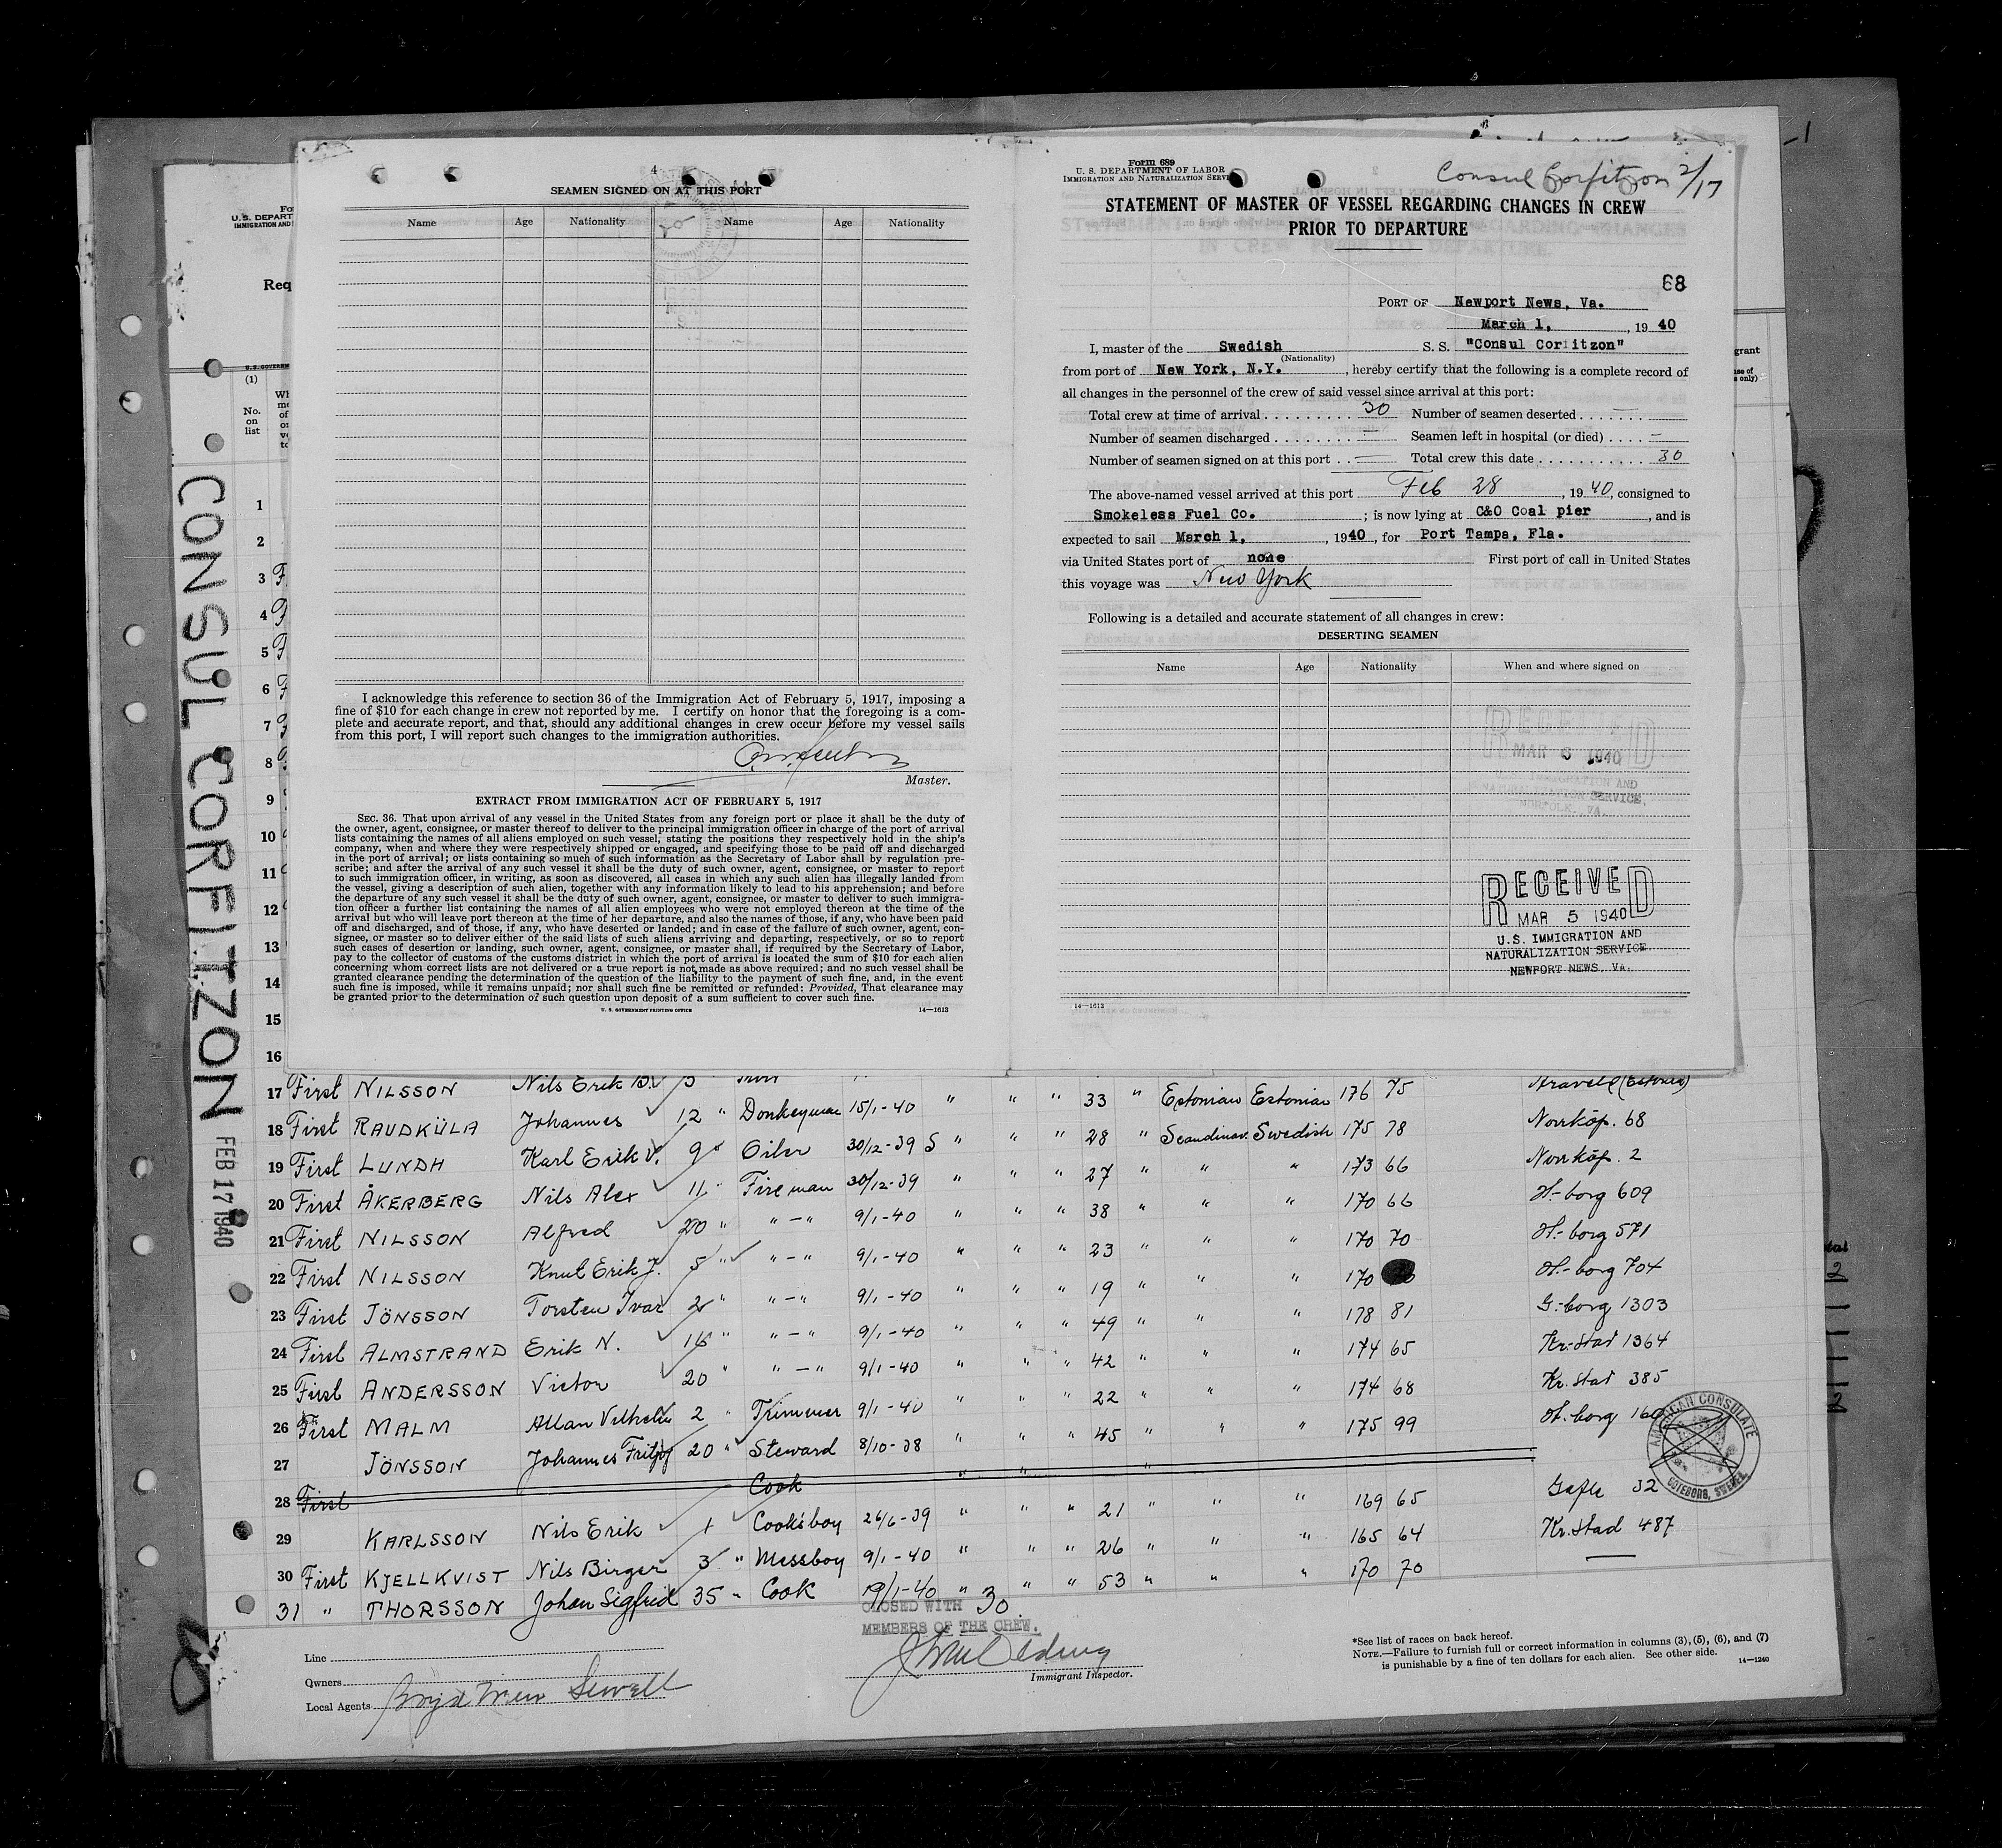 4
SEAMEN SIGNED ON AT THIS PORT
Name Age Nationality Name Age Nationality
I acknowledge this reference to section 36 of the Immigration Act of February 5, 1917, imposing a
fine of $10 for each change in crew not reported by me. I certify on honor that the foregoing is a com-
plete and accurate report, and that, should any additional changes in crew occur before my vessel sails
from this port, I will report such changes to the immigration authorities.
Master.
EXTRACT FROM IMMIGRATION ACT OF FEBRUARY 5, 1917
SEC. 36. That upon arrival of any vessel in the United States from any foreign port or place it shall be the duty of
the owner, agent, consignee, or master thereof to deliver to the principal immigration officer in charge of the port of arrival
lists containing the names of all aliens employed on such vessel, stating the positions they respectively hold in the ship's
company, when and where they were respectively shipped or engaged, and specifying those to be paid off and discharged
in the port of arrival; or lists containing so much of such information as the Secretary of Labor shall by regulation pre-
scribe; and after the arrival of any such vessel it shall be the duty of such owner, agent, consignee, or master to report
to such immigration officer, in writing, as soon as discovered, all cases in which any such alien has illegally landed from
the vessel, giving a description of such alien, together with any information likely to lead to his apprehension; and before
the departure of any such vessel it shall be the duty of such owner, agent, consignee, or master to deliver to such immigra-
tion officer a further list containing the names of all alien employees who were not employed thereon at the time of the
arrival but who will leave port thereon at the time of her departure, and also the names of those, if any, who have been paid
off and discharged, and of those, if any, who have deserted or landed; and in case of the failure of such owner, agent, con-
signee, or master so to deliver either of the said lists of such aliens arriving and departing, respectively, or so to report
such cases of desertion or landing, such owner, agent, consignee, or master shall, if required by the Secretary of Labor,
pay to the collector of customs of the customs district in which the port of arrival is located the sum of $10 for each alien
concerning whom correct lists are not delivered or a true report is not made as above required; and no such vessel shall be
granted clearance pending the determination of the question of the liability to the payment of such fine, and, in the event
such fine is imposed, while it remains unpaid; nor shall such fine be remitted or refunded: Provided, That clearance may
be granted prior to the determination of such question upon deposit of a sum sufficient to cover such fine.
U. S. GOVERNMENT PRINTING OFFICE 14—1613
Form 689
U. S. DEPARTMENT OF LABOR
IMMIGRATION AND NATURALIZATION SERVI
Consul Corfitzon 2/17
STATEMENT OF MASTER OF VESSEL REGARDING CHANGES IN CREW
PRIOR TO DEPARTURE
68
PORT OF Newport News, Va.
March 1, , 19 40
I, master of the Swedish S. S. "Consul Corfitzon"
(Nationality)
from port of New York, N.Y. , hereby certify that the following is a complete record of
all changes in the personnel of the crew of said vessel since arrival at this port:
Total crew at time of arrival 30 Number of seamen deserted —
Number of seamen discharged — Seamen left in hospital (or died) —
Number of seamen signed on at this port — Total crew this date 30
The above-named vessel arrived at this port Feb 28 , 19 40, consigned to
Smokeless Fuel Co. ; is now lying at C&O Coal pier , and is
expected to sail March 1, , 1940 , for Port Tampa, Fla.
via United States port of none First port of call in United States
this voyage was New York
Following is a detailed and accurate statement of all changes in crew:
DESERTING SEAMEN
Name Age Nationality When and where signed on
RECEIVED
MAR 6 1940
IMMIGRATION AND
NATURALIZATION SERVICE,
NORFOLK, VA.
RECEIVED
MAR 5 1940
U.S. IMMIGRATION AND
NATURALIZATION SERVICE
NEWPORT NEWS, VA.
14—1613
U.S. DEPART
IMMIGRATION AND
Req
U.S. GOVERNM
(1)
No.
on
list
CONSUL CORFITZON
FEB 17 1940
1
2
3
4
5
6
7
8
9
10
11
12
13
14
15
16
17 First NILSSON Nils Erik B. 5
18 First RAUDKÜLA Johannes 12 " Donkeyman 15/1-40 " " " 33 " Estonian Estonian 176 75 (Estonia)
19 First LUNDH Karl Erik V. 9 " Oiler 30/12-39 S " " " 28 " Scandinav. Swedish 175 78 Norrköp. 68
20 First ÅKERBERG Nils Alex 11 " Fireman 30/12-39 " " " 27 " " " 173 66 Norrköp. 2
21 First NILSSON Alfred 20 " " — " 9/1-40 " " " 38 " " " 170 66 H-borg 609
22 First NILSSON Knut Erik J. 5 " " — " 9/1-40 " " " 23 " " " 170 70 H-borg 571
23 First JÖNSSON Torsten Ivar 2 " " — " 9/1-40 " " " 19 " " " 170 H-borg 704
24 First ALMSTRAND Erik N. 16 " " — " 9/1-40 " " " 49 " " " 178 81 G-borg 1303
25 First ANDERSSON Victor 20 " " — " 9/1-40 " " " 42 " " " 174 65 Kr.stad 1364
26 First MALM Allan Vilhelm 2 " Trimmer 9/1-40 " " " 22 " " " 174 68 Kr.stad 385
27 JÖNSSON Johannes Fritjof 20 " Steward 8/10-38 " " " 45 " " " 175 99 H-borg
28 First Cook " " "
29 KARLSSON Nils Erik 1 Cooksboy 26/6-39 " " " 21 " " " 169 65 Gefle 32
30 First KJELLKVIST Nils Birger 3 " Messboy 9/1-40 " " " 26 " " " 165 64 Kr.stad 487
31 " THORSSON Johan Sigfrid 35 " Cook 19/1-40 " " " 53 " " " 170 70 —
AMERICAN CONSULATE
GOTEBORG, SWEDEN
CLOSED WITH 30
MEMBERS OF THE CREW.
Line
Owners
Local Agents
Immigrant Inspector.
*See list of races on back hereof.
NOTE.—Failure to furnish full or correct information in columns (3), (5), (6), and (7)
is punishable by a fine of ten dollars for each alien. See other side. 14—1240